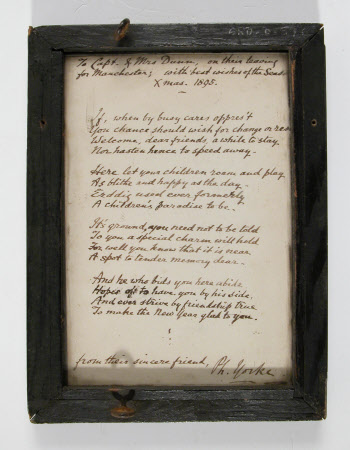 To Capt. & Mrs Dunn, on their leaving
for Manchester; with best wishes of the Season
Xmas. 1895.
If, when by busy cares oppres't
You chance should wish for change or rest
Welcome, dear friends, a while to stay
Nor hasten hence to speed away.
Here let your children roam and play
As blithe and happy as the day.
Erddig used ever formerly
A children's paradise to be.
Its ground, you need not to be told
To you a special charm will hold
For well you know that it is near
A spot to tender memory dear.
And he who bids you here abide
Hopes oft to have you by his side.
And ever strive by friendship true
To make the New Year glad to you.
from their sincere friend, Ph. Yorke